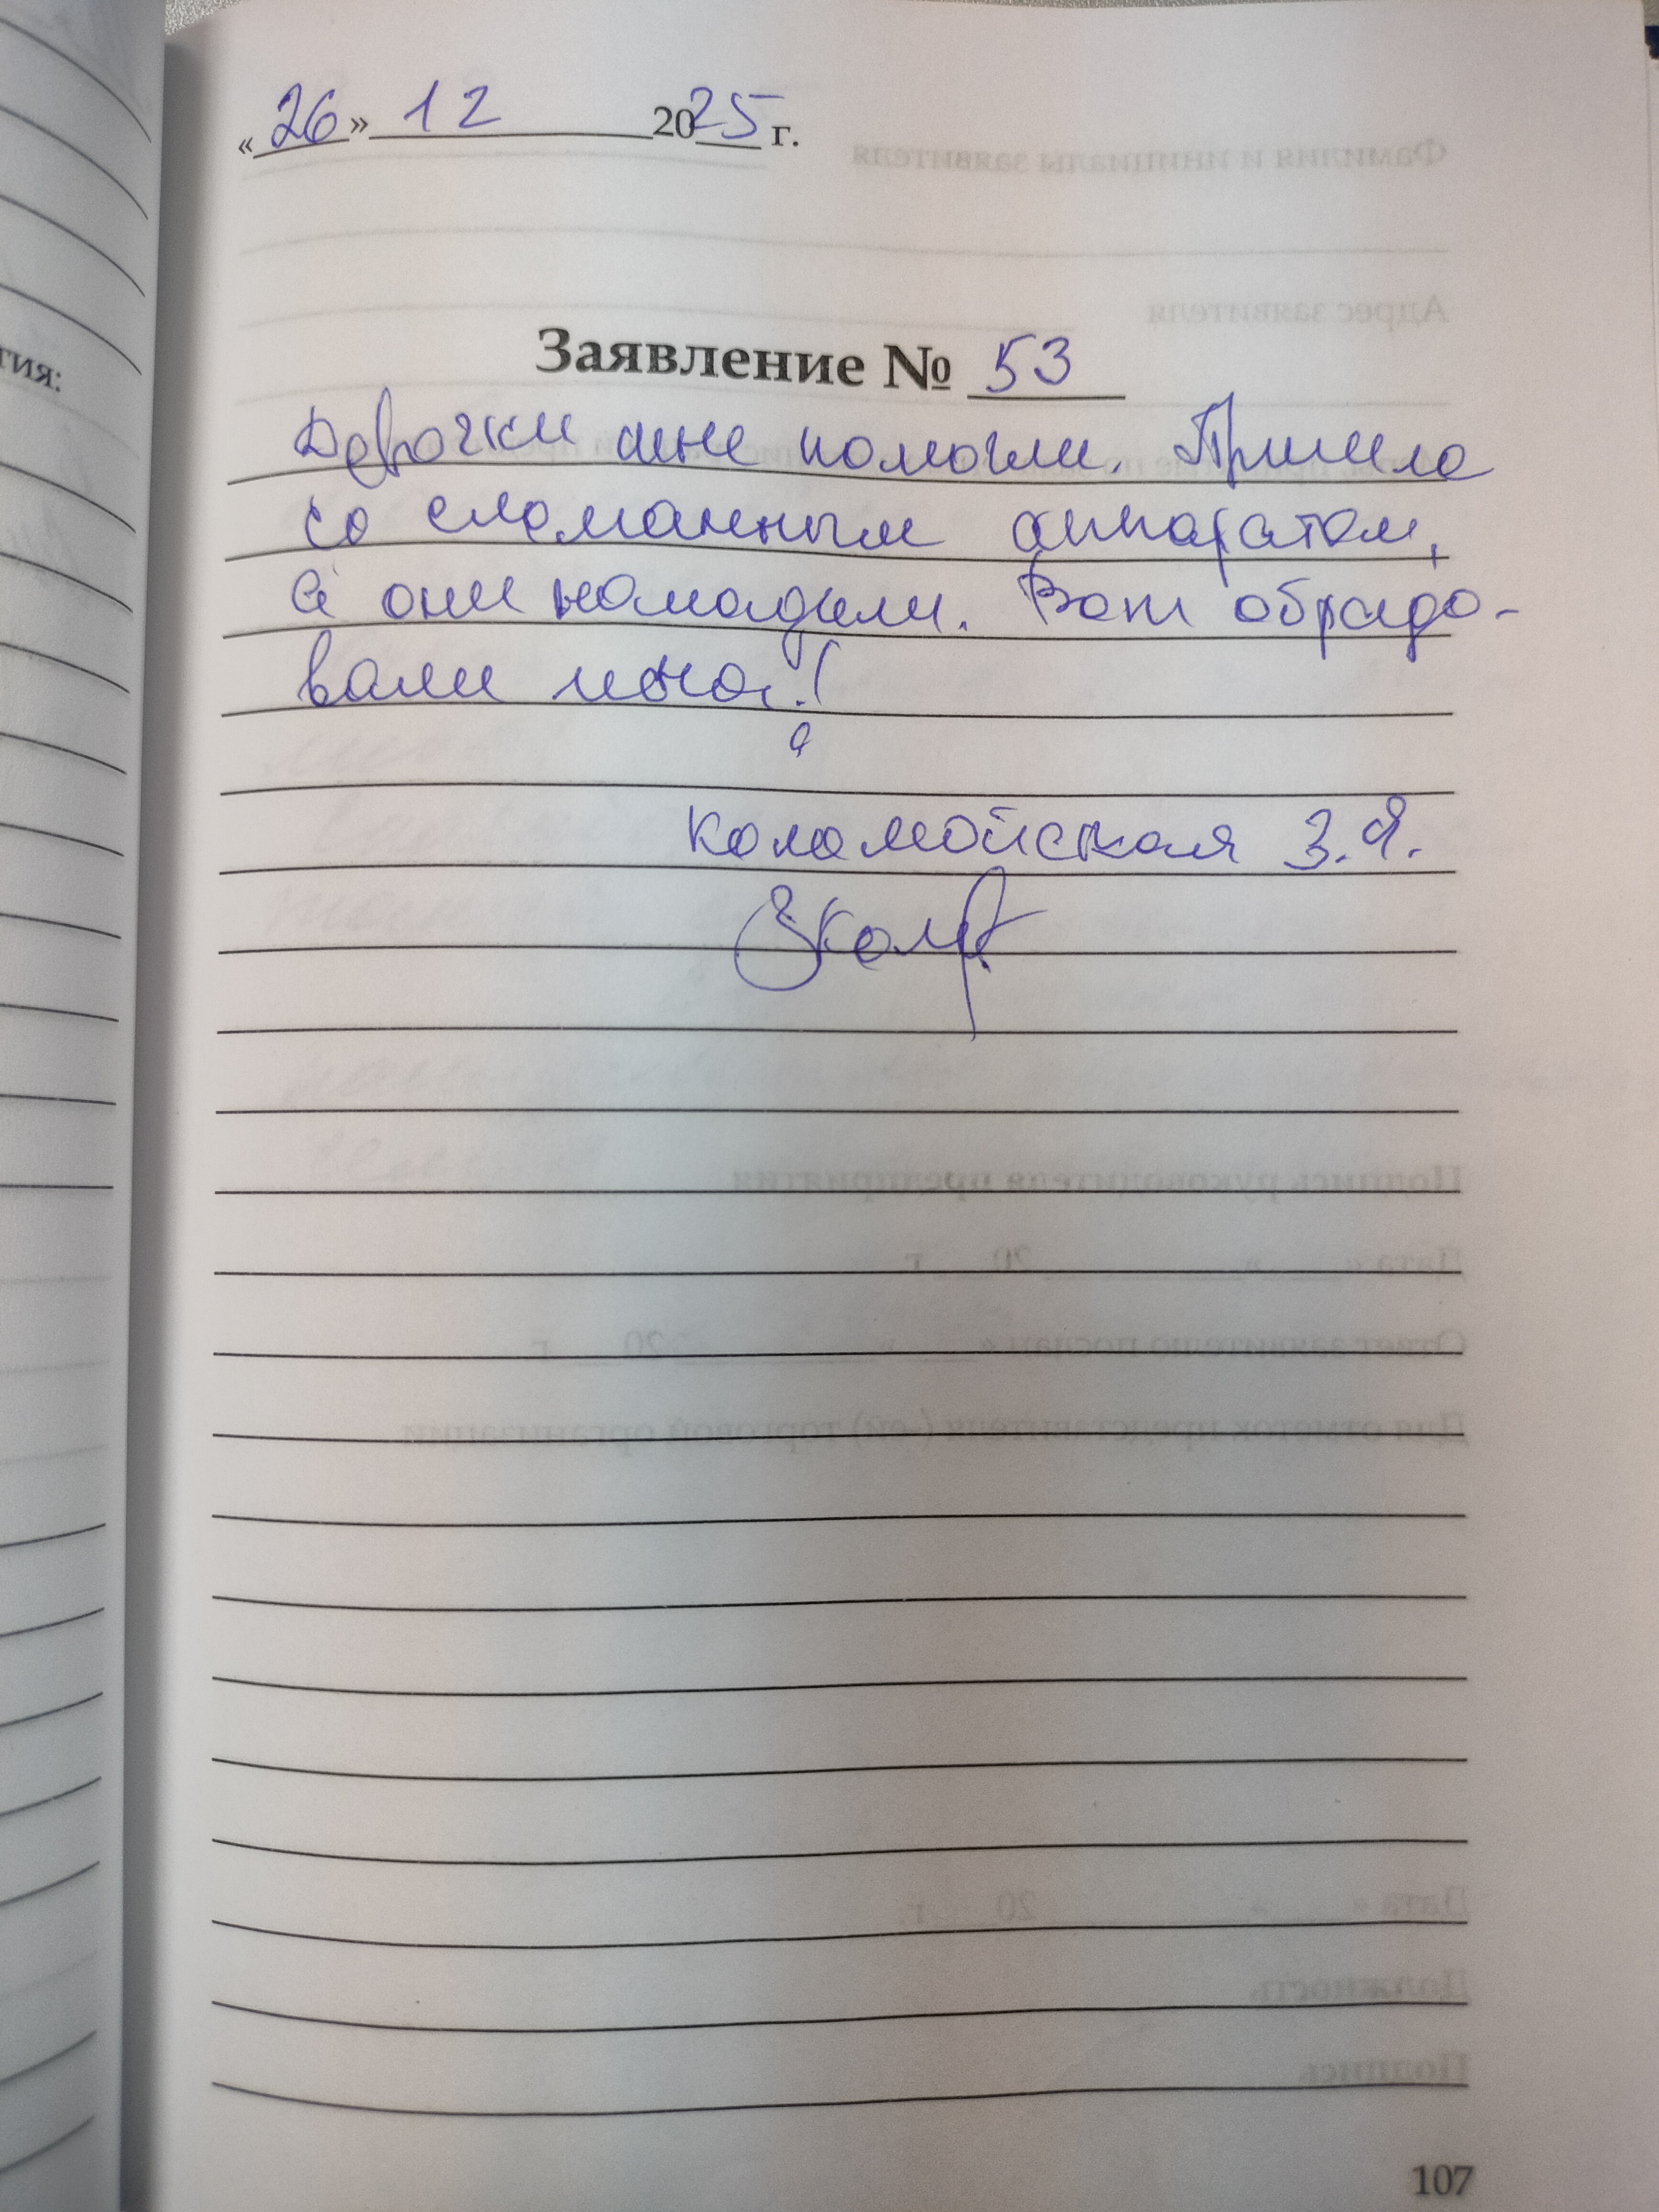 «26» 12 2025 г.
Заявление № 53
Девочки мне помогли. Пришла
со сломанным аппаратом,
а они наладили. Вот обрадо-
вали меня!
Коломойская З.Я.
107